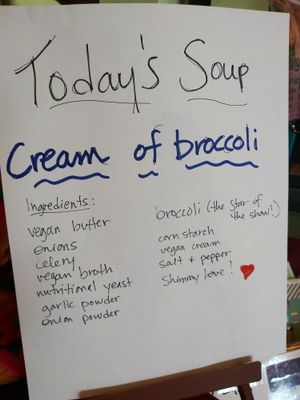 Today's Soup
Cream of broccoli
Ingredients:
vegan butter
onions
celery
vegan broth
nutritional yeast
garlic powder
onion powder
broccoli (the star of
the show!)
corn starch
vegan cream
salt + pepper
Shimmy love!